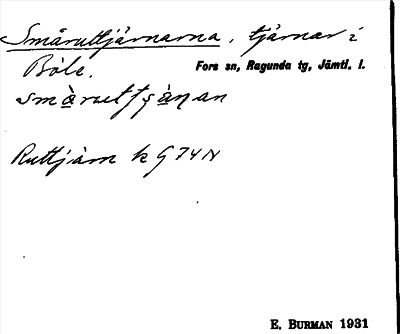 Småruttjärnarna, tjärnar i
Böle. Fors sn, Ragunda tg, Jämtl. l.
smàruttjànan
Ruttjärn k G74N
E. BURMAN 1931